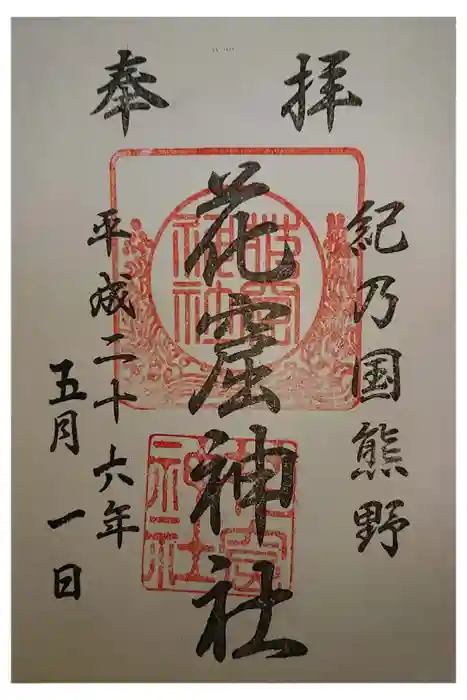 奉拝
紀乃国熊野
花窟神社
平成二十六年
五月一日
花窟神社